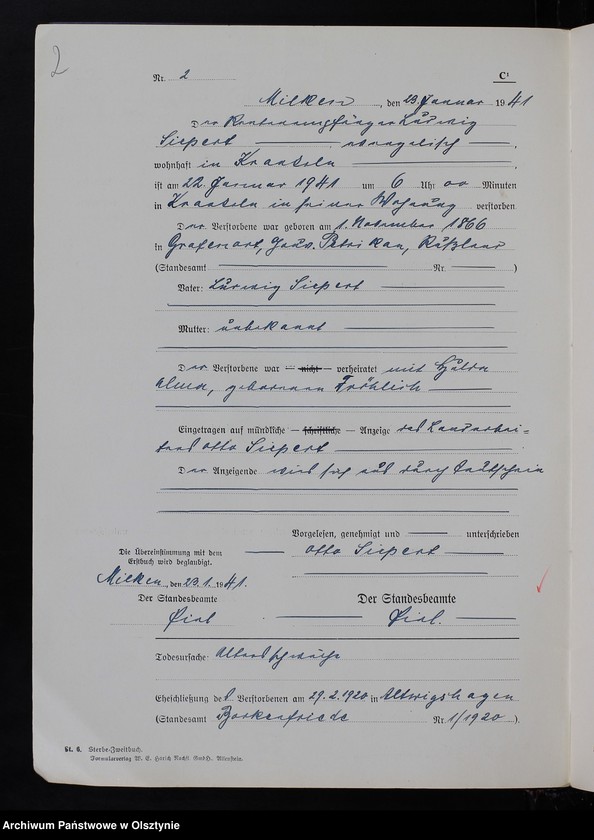 2
Nr. 2 C¹
Milken, den 23. Januar 1941
Der Rentenempfänger Ludwig
Siepert — evangelisch —,
wohnhaft in Kraukeln —,
ist am 22. Januar 1941 um 6 Uhr 00 Minuten
in Kraukeln in seiner Wohnung verstorben
Der Verstorbene war geboren am 1. November 1866
in Grafenort, Gouv. Petrikau, Rußland
(Standesamt — Nr. — )
Vater: Ludwig Siepert —
Mutter: unbekannt —
Der Verstorbene war — nicht — verheiratet mit Hulda
Alma, geborenen Fröhlich —
Eingetragen auf mündliche — schriftliche — Anzeige des Landarbei=
ters Otto Siepert —
Der Anzeigende wies sich aus durch
Vorgelesen, genehmigt und — unterschrieben
— Otto Siepert —
Die Übereinstimmung mit dem
Erstbuch wird beglaubigt.
Milken, den 23.1.1941.
Der Standesbeamte
Der Standesbeamte
Todesursache: Altersschwäche
Eheschließung des Verstorbenen am 29.2.1920 in Altwigshagen
(Standesamt Borkenfriede Nr. 1/1920).
St. 6. Sterbe-Zweitbuch.
Formularverlag W. E. Harich Nachfl. GmbH. Allenstein.
Archiwum Państwowe w Olsztynie